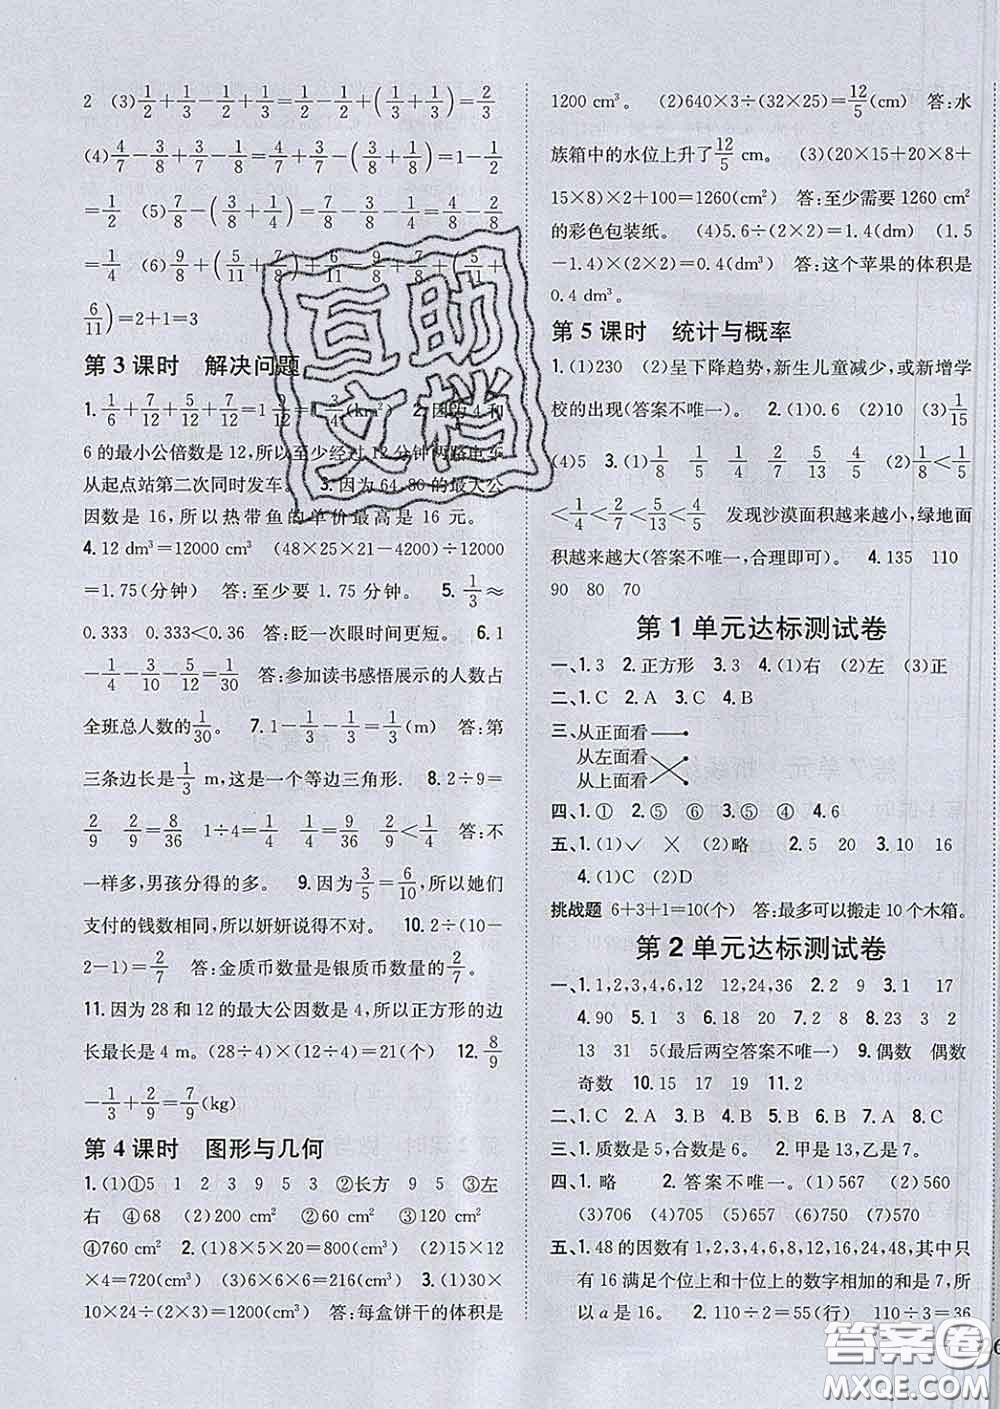 2 (3)1/2+1/3-1/2+1/3=1/2-1/2+(1/3+1/3)=2/3
(4)4/7-3/8+3/7-1/8=4/7+3/7-(3/8+1/8)=1-1/2
=1/2 (5)7/8-(3/8+1/4)=7/8-3/8-1/4=4/8-2/8
=1/4 (6)9/8+(5/11+7/8)+6/11
6/11)=2+1=3
第3课时 解决问题
1.1/6+7/12+5/12+7/12=1 3/4(km²) 2.因为4和
6的最小公倍数是12,所以至少经过12分钟两路电车
从起点站第二次同时发车。 3.因为64,80的最大公
因数是16,所以热带鱼的单价最高是16元。
4.12 dm³=12000 cm³ (48×25×21-4200)÷12000
=1.75(分钟) 答:至少要1.75分钟。 5.1/3≈
0.333 0.333<0.36 答:眨一次眼时间更短。 6.1
-1/4-3/10-5/12=1/30 答:参加读书感悟展示的人数占
全班总人数的1/30。 7.1-1/3-1/3=1/3(m) 答:第
三条边长是1/3 m,这是一个等边三角形. 8.2÷9=
2/9 2/9=8/36 1÷4=1/4=9/36 2/9<1/4 答:不
一样多,男孩分得的多。 9.因为3/5=6/10,所以她们
支付的钱数相同,所以妍妍说得不对。 10.2÷(10-
2-1)=2/7 答:金质币数量是银质币数量的2/7。
11.因为28和12的最大公因数是4,所以正方形的边
长最长是4 m。(28÷4)×(12÷4)=21(个) 12.8/9
-1/3+2/9=7/9(kg)
第4课时 图形与几何
1.(1)①5 1 2 3 9 5 3 ②长方 9 5 ③左
右 ④68 (2)200 cm² ②60 cm² ③120 cm²
④760 cm² 2.(1)8×5×20=800(cm³) (2)15×12
×4=720(cm³) (3)6×6×6=216(cm³) 3.(1)30×
10×24÷(2×3)=1200(cm³) 答:每盒饼干的体积是
1200 cm³。 (2)640×3÷(32×25)=12/5(cm) 答:水
族箱中的水位上升了12/5 cm。 (3)(20×15+20×8+
15×8)×2+100=1260(cm²) 答:至少需要1260 cm²
的彩色包装纸。 (4)5.6÷(2×2)=1.4(dm) (1.5
-1.4)×(2×2)=0.4(dm³) 答:这个苹果的体积是
0.4 dm³。
第5课时 统计与概率
1.(1)230 (2)呈下降趋势,新生儿童减少,或新增学
校的出现(答案不唯一)。 2.(1)0.6 (2)10 (3)1/15
(4)5 3.(1)1/8 1/5 1/4 2/7 5/13 4/5 (2)1/8<1/5
<1/4<2/7<5/13<4/5 发现沙漠面积越来越小,绿地面
积越来越大(答案不唯一,合理即可)。 4.135 110
90 80 70
第1单元达标测试卷
一、1.3 2.正方形 3.3 4.(1)右 (2)左 (3)正
二、1.C 2.A 3.C 4.B
三、从正面看
从左面看
从上面看
四、1.① 2.⑤ ⑥ 3.⑤ ④ 4.6
五、1.(1)✓ × (2)略 2.5 20 3.10 16
4.(1)C (2)D
挑战题 6+3+1=10(个) 答:最多可以搬走10个木箱。
第2单元达标测试卷
一、1.1,2,3,4,6,12 12,24,36 2.2 9 3.1 17
4.90 5.1 3 6.18 20 7.2 8 8.23 3 2
13 31 5(最后两空答案不唯一) 9.偶数 偶数
奇数 10.15 17 19 11.2
二、1.C 2.A 3.C 4.B 5.B 6.B 7.A 8.C
三、1.质数是5,合数是6。 2.甲是13,乙是7。
四、1.略 2.答案不唯一。(1)567 (2)560
(3)706 (4)502 (5)720 (6)705 (7)570
五、1.48的因数有1,2,3,4,6,8,12,16,24,48,其中只
有16满足个位上和十位上的数字相加的和是7,所
以a是16。 2.110÷2=55(行) 110÷3=36
互助
文档
答案圈
MXQE.COM